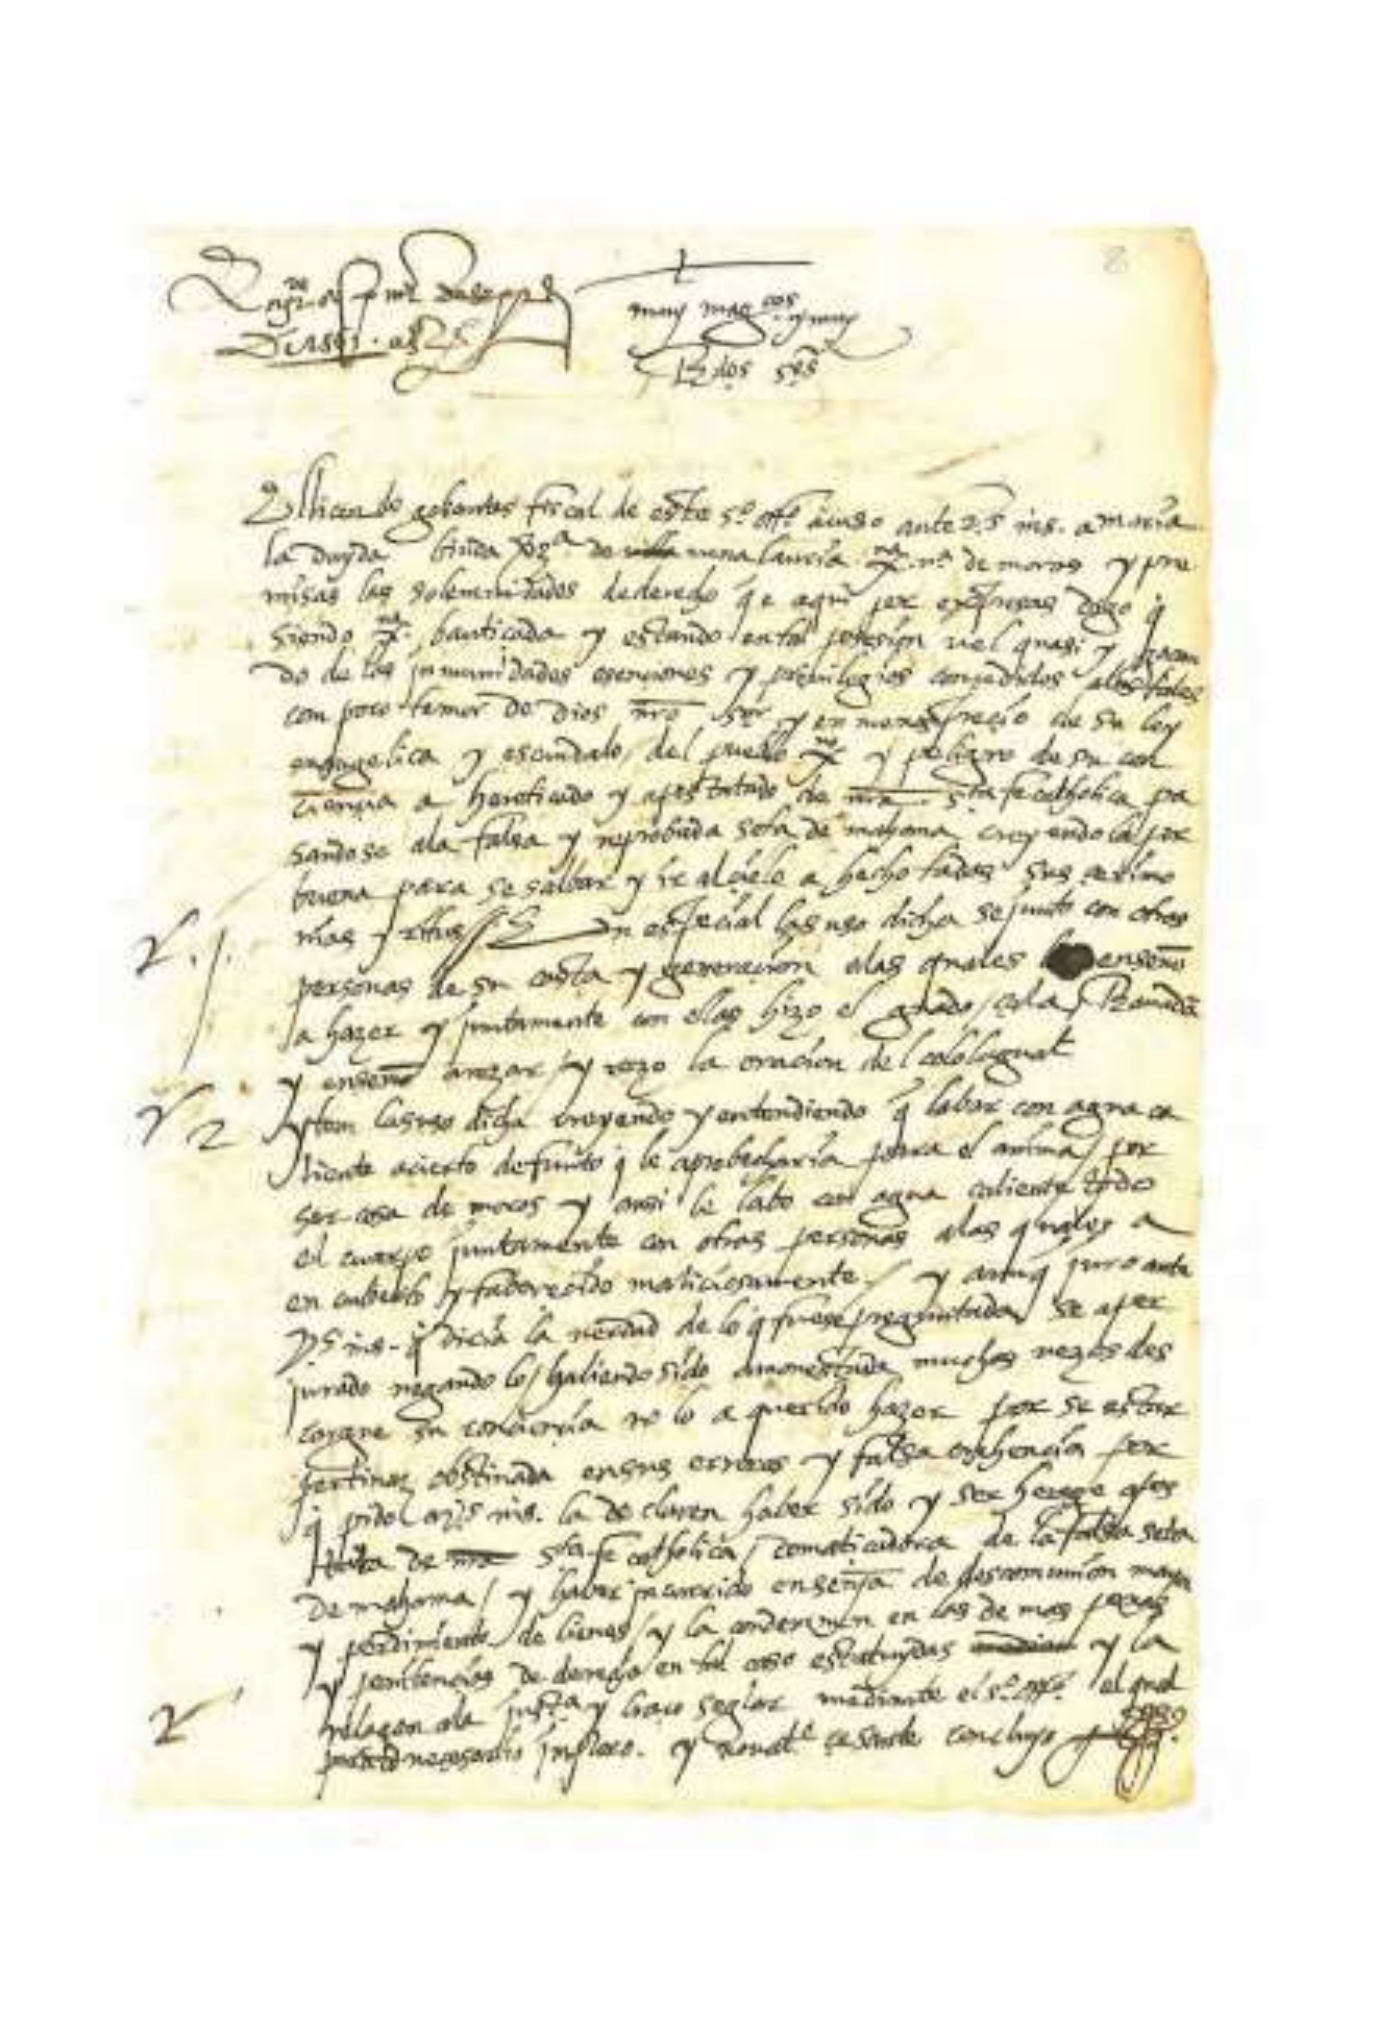 muy mag.cos y muy
Rdos srs
El licendo gobantes fiscal de este sº offº acuso ante v.s. ms. a maria
la duyda biuda vezª de villa nena lauria xna nª de moros y pre
misas las solemnidades de derecho q e aqui por expresas digo q
siendo xna bauticada y estando en tal posesion vel quasi y gocan
do de las ynmunidades esenciones y preuilegios concedidos a los tales
con poco temor de dios nro Sor y en menosprecio de su ley
euangelica y escandalo del pueblo xno y peligro de su con
ciencia a hereticado y apostatado de nra sta fe catholica pa
sandose a la falsa y reprobada seta de mahoma creyendo la por
buena para se salbar y ir al cielo a hecho todas sus cerimo
nias y rittus En especial la suso dicha se junto con otras
personas de su casta y generacion a las quales enseño
a hazer y juntamente con ellas hizo el guado, cala, Ramadan
y enseño a rezar y rezo la oracion del colo
ytem la suso dicha creyendo y entendiendo q labar con agua ca
liente a cierto defunto q le aprobecharia para el anima por
ser cosa de moros y ansi le labo con agua caliente todo
el cuerpo juntamente con otras personas a las quales a
encubierto y faborecido maliciosamente / y aunq juro ante
v.s. ms. q diria la verdad de lo q fuese preguntada se a per
jurado negando lo / habiendo sido amonestada muchas vezes des
cargue su conciencia no lo a querido hazer por se estar
pertinaz obstinada en sus errores y falsa crehencia por
q pido a v.s. ms. la declaren haber sido y ser herege apos
tata de nra sta fe catholica / domaticadora de la falsa seta
de mahoma / y haber yncurrido en senta de descomunion mayor
y perdimiento de bienes / y la condenen en las de mas penas
y penitencias de derecho en tal caso estatuydas y la
relagen a la justa y braco seglar mediante el sº offº el qual
necesario ynploro. y nouate cesante concluyo